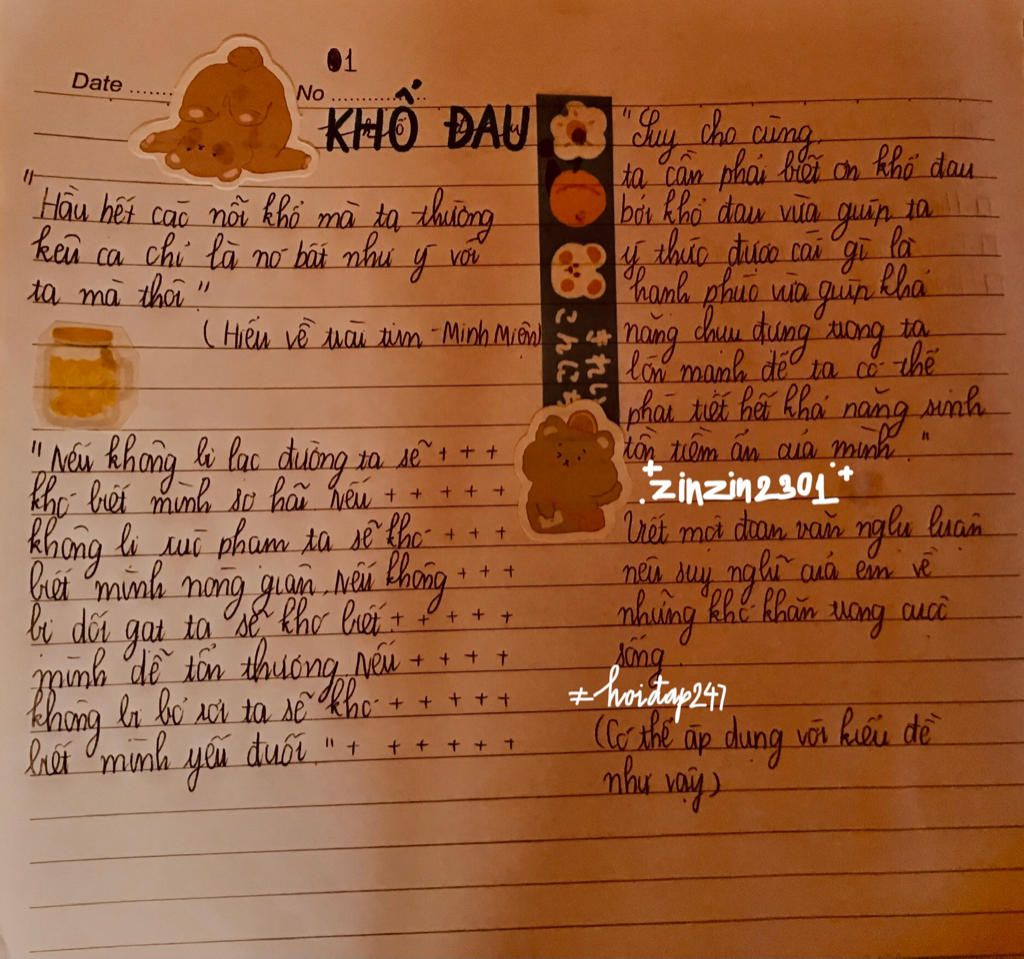 01
Date ........ No ................
KHỔ ĐAU
"Hầu hết các nỗi khổ mà ta thường
kêu ca chỉ là nó bất như ý với
ta mà thôi"
(Hiểu về trái tim - Minh Miên)
"Nếu không bị lạc đường ta sẽ + + +
khó biết mình sợ hãi. Nếu + + + + +
không bị xúc phạm ta sẽ khó + + +
biết mình nóng giận. Nếu không + + +
bị dối gạt ta sẽ khó biết + + + + +
mình dễ tổn thương. Nếu + + + +
không bị bỏ rơi ta sẽ khó + + + + +
biết mình yếu đuối." + + + + + +
きれい
こんにち
"Suy cho cùng,
ta cần phải biết ơn khổ đau
bởi khổ đau vừa giúp ta
ý thức được cái gì là
hạnh phúc vừa giúp khả
năng chịu đựng trong ta
lớn mạnh để ta có thể
phát tiết hết khả năng sinh
tồn tiềm ẩn của mình."
zinzin2301
Viết một đoạn văn nghị luận
nêu suy nghĩ của em về
những khó khăn trong cuộc
sống.
≠ hoidap247
(Có thể áp dụng với kiểu đề
như vậy)